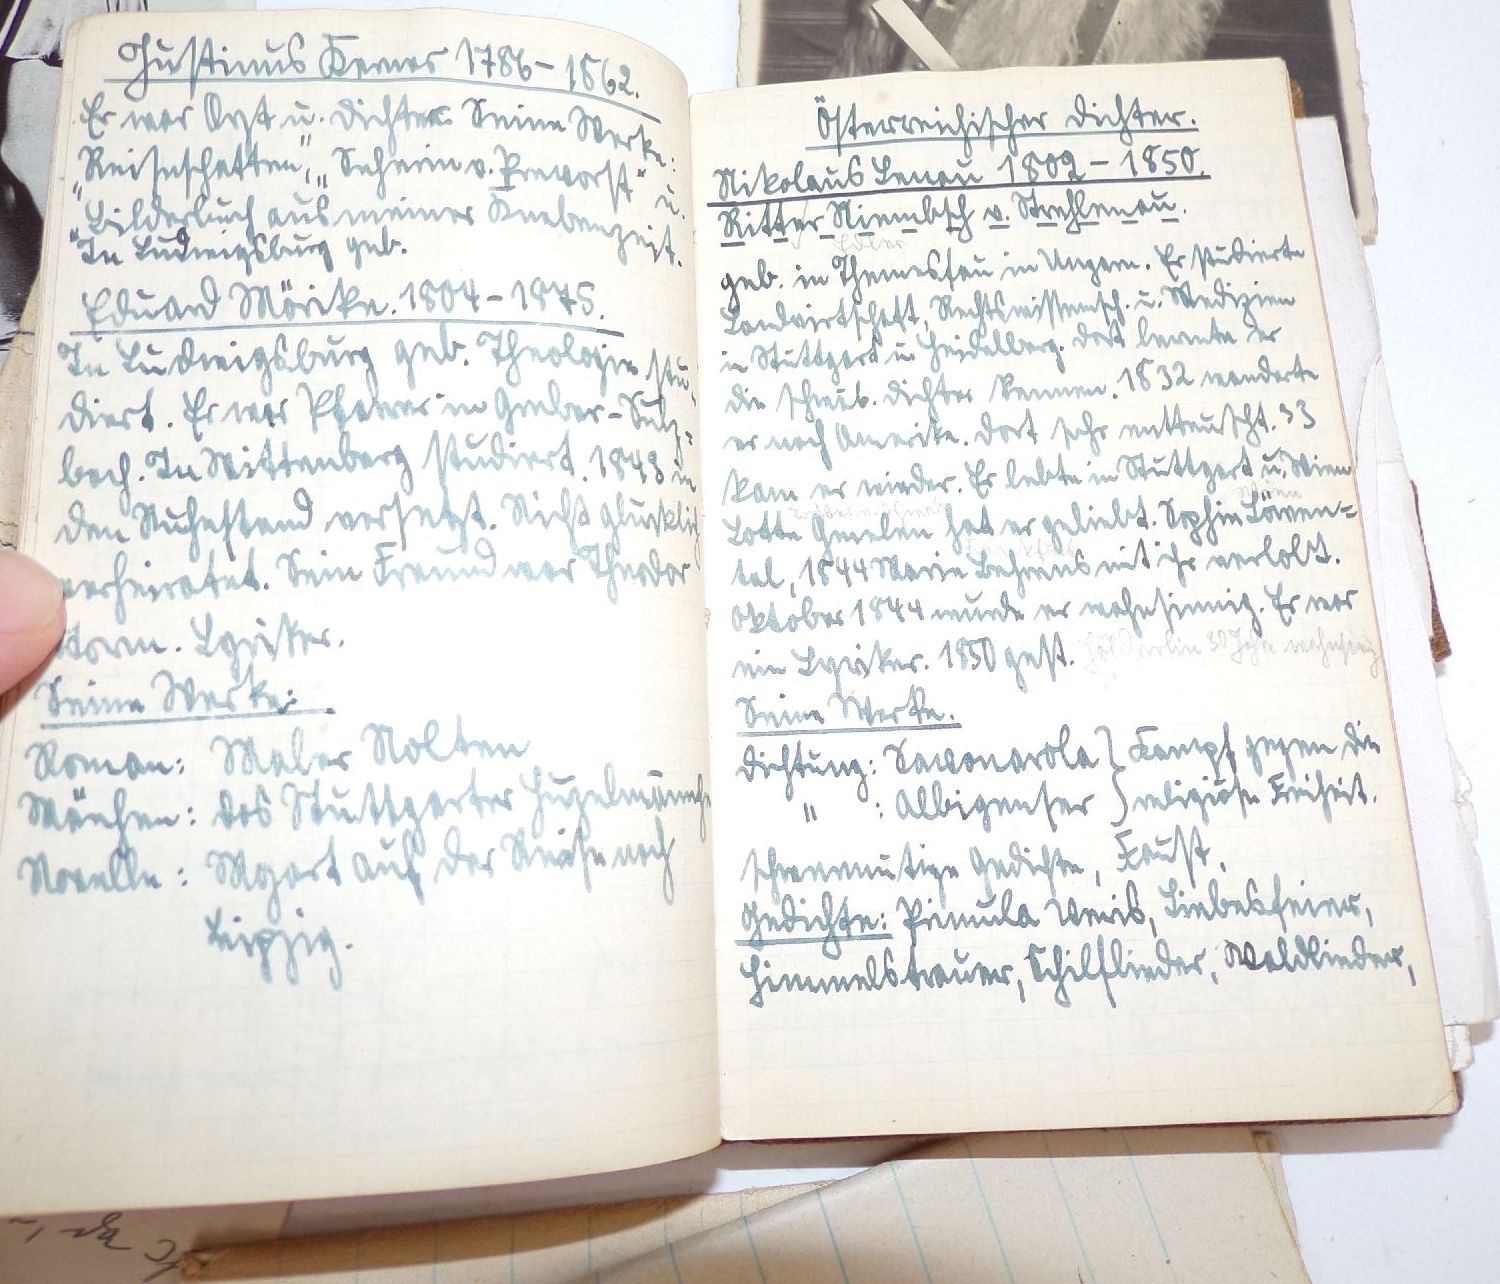 Justinus Kerner 1786 – 1862.
Er war Arzt u. Dichter. Seine Werke:
„Reiseschatten", „Seherin v. Prevorst" u.
„Bilderbuch aus meiner Knabenzeit.
In Ludwigsburg geb.
Eduard Mörike. 1804 – 1875.
In Ludwigsburg geb. Theologie stu-
diert. Er war Pfarrer in Gleber-Sulz=
bach. In Wittenberg studiert. 1843 in
den Ruhestand versetzt. Nicht glücklich
verheiratet. Sein Freund war Theodor
Storm. Lyriker.
Seine Werke:
Roman: Maler Nolten
Märchen: Das Stuttgarter Huzelmännche
Novelle: Mozart auf der Reise nach
Leipzig.
Österreichischer Dichter.
Nikolaus Lenau 1802 – 1850.
Ritter Niembsch v. Strehlenau.
Edler
geb. in Themesfau in Ungarn. Er studierte
Landwirtschaft, Rechtswissensch. u. Medizien
in Stuttgart u. Heidelberg. Dort lernte er
die schwäb. Dichter kennen. 1832 wanderte
er nach Amerika. Dort sehr enttäuscht. 33
kam er wieder. Er lebte in Stuttgart u. Wien
Lotte Gmelin hat er geliebt. Sophie Löwen=
tal, 1844 Marie Behrens mit ihr verlobt.
Oktober 1844 wurde er wahnsinnig. Er war
ein Lyriker. 1850 gest. Hölderlin 30 Jahre wahnsinnig
Seine Werke.
Dichtung: Savonarola } Kampf gegen die
" : Albigenser } religiöse Freiheit.
schwermütige Gedichte, Faust.
Gedichte: Primula Veris, Liebesfeier,
Himmelstrauer, Schilflieder, Waldlieder,